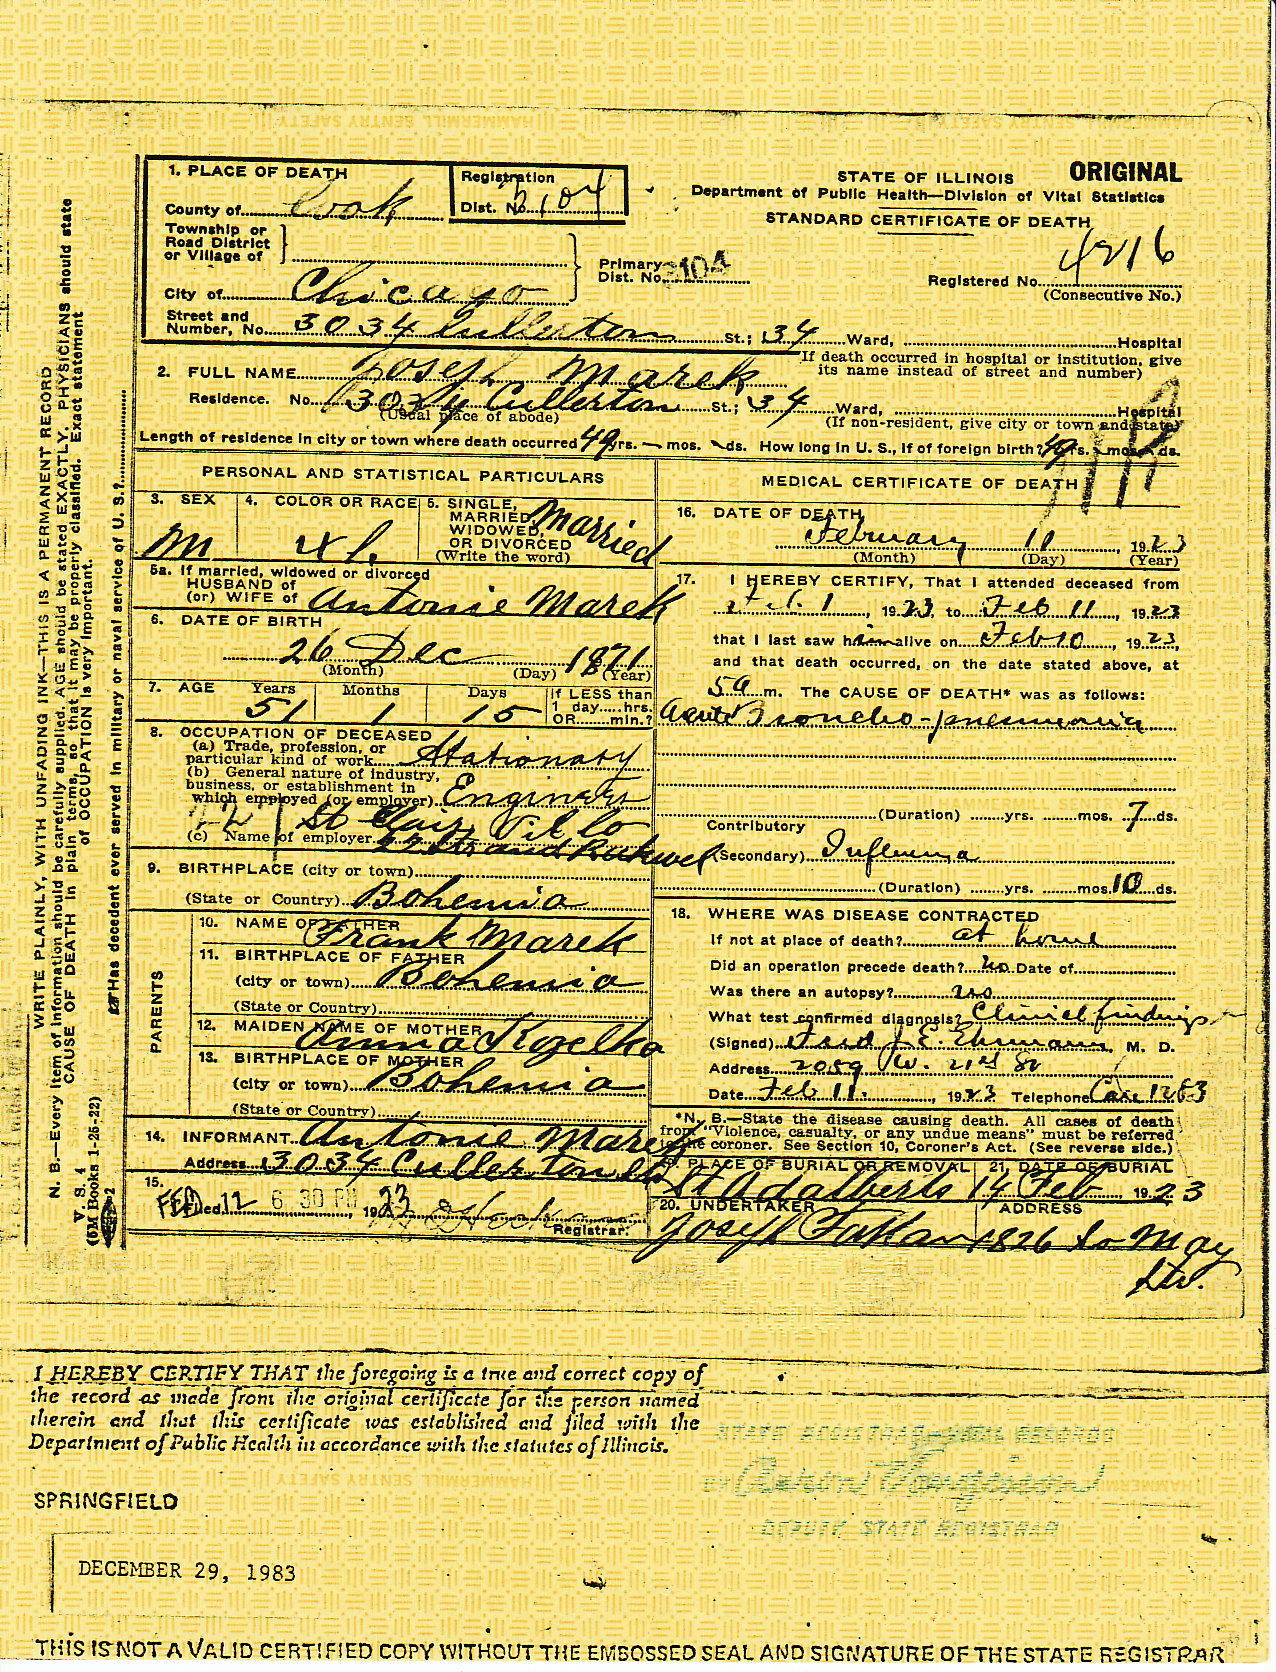 1. PLACE OF DEATH
County of Cook
Registration
Dist. No. 3104
Township or
Road District
or Village of
City of Chicago
Street and
Number, No. 3034 Cullerton St.; 34 Ward, Hospital
Primary
Dist. No. 3104
STATE OF ILLINOIS ORIGINAL
Department of Public Health—Division of Vital Statistics
STANDARD CERTIFICATE OF DEATH
Registered No. 4216
(Consecutive No.)
(If death occurred in hospital or institution, give
its name instead of street and number)
2. FULL NAME Joseph Marek
Residence. No. 3034 Cullerton St.; 34 Ward, Hospital
(Usual place of abode)
(If non-resident, give city or town and state)
Length of residence in city or town where death occurred 49 yrs. — mos. ds. How long in U. S., if of foreign birth? 49 yrs. mos. ds.
PERSONAL AND STATISTICAL PARTICULARS
3. SEX
M
4. COLOR OR RACE
Wh.
5. SINGLE,
MARRIED,
WIDOWED,
OR DIVORCED
(Write the word)
Married
5a. If married, widowed or divorced
HUSBAND of
(or) WIFE of Antonie Marek
6. DATE OF BIRTH
26 Dec 1871
(Month) (Day) (Year)
7. AGE Years Months Days
51 1 15
If LESS than
1 day.....hrs.
OR.......min.?
8. OCCUPATION OF DECEASED
(a) Trade, profession, or
particular kind of work Stationary
(b) General nature of industry,
business, or establishment in
which employed (or employer) Engineer
(c) Name of employer St Clair
9. BIRTHPLACE (city or town)
(State or Country) Bohemia
PARENTS
10. NAME OF FATHER
Frank Marek
11. BIRTHPLACE OF FATHER
(city or town) Bohemia
(State or Country)
12. MAIDEN NAME OF MOTHER
Anna Kozelka
13. BIRTHPLACE OF MOTHER
(city or town) Bohemia
(State or Country)
14. INFORMANT Antonie Marek
Address 3034 Cullerton St
15.
Filed FEB 12 6 30 PM, 1923
Registrar.
MEDICAL CERTIFICATE OF DEATH
16. DATE OF DEATH
February 11, 1923
(Month) (Day) (Year)
17. I HEREBY CERTIFY, That I attended deceased from
Feb. 1, 1923, to Feb 11, 1923
that I last saw him alive on Feb 10, 1923,
and that death occurred, on the date stated above, at
5 a m. The CAUSE OF DEATH* was as follows:
Acute Broncho-pneumonia
(Duration) yrs. mos. 7 ds.
Contributory
(Secondary) Influenza
(Duration) yrs. mos. 10 ds.
18. WHERE WAS DISEASE CONTRACTED
If not at place of death? at home
Did an operation precede death? no Date of
Was there an autopsy? no
What test confirmed diagnosis? Clinical findings
(Signed) Fred J. E. Ehrmann, M. D.
Address 2059 W. 21st St
Date Feb 11., 1923 Telephone Can 1283
*N. B.—State the disease causing death. All cases of death
from "Violence, casualty, or any undue means" must be referred
to the coroner. See Section 10, Coroner's Act. (See reverse side.)
19. PLACE OF BURIAL OR REMOVAL
St Adalberts
21. DATE OF BURIAL
14 Feb, 1923
20. UNDERTAKER ADDRESS
Joseph 1826 So May
St.
WRITE PLAINLY, WITH UNFADING INK—THIS IS A PERMANENT RECORD
N. B.—Every item of information should be carefully supplied. AGE should be stated EXACTLY. PHYSICIANS should state
CAUSE OF DEATH in plain terms, so that it may be properly classified. Exact statement
of OCCUPATION is very important.
Has decedent ever served in military or naval service of U. S.?
V. S. 4
(5M Books 1-25-22)
I HEREBY CERTIFY THAT the foregoing is a true and correct copy of
the record as made from the original certificate for the person named
therein and that this certificate was established and filed with the
Department of Public Health in accordance with the statutes of Illinois.
STATE REGISTRAR—VITAL RECORDS
BY
DEPUTY STATE REGISTRAR
SPRINGFIELD
DECEMBER 29, 1983
THIS IS NOT A VALID CERTIFIED COPY WITHOUT THE EMBOSSED SEAL AND SIGNATURE OF THE STATE REGISTRAR